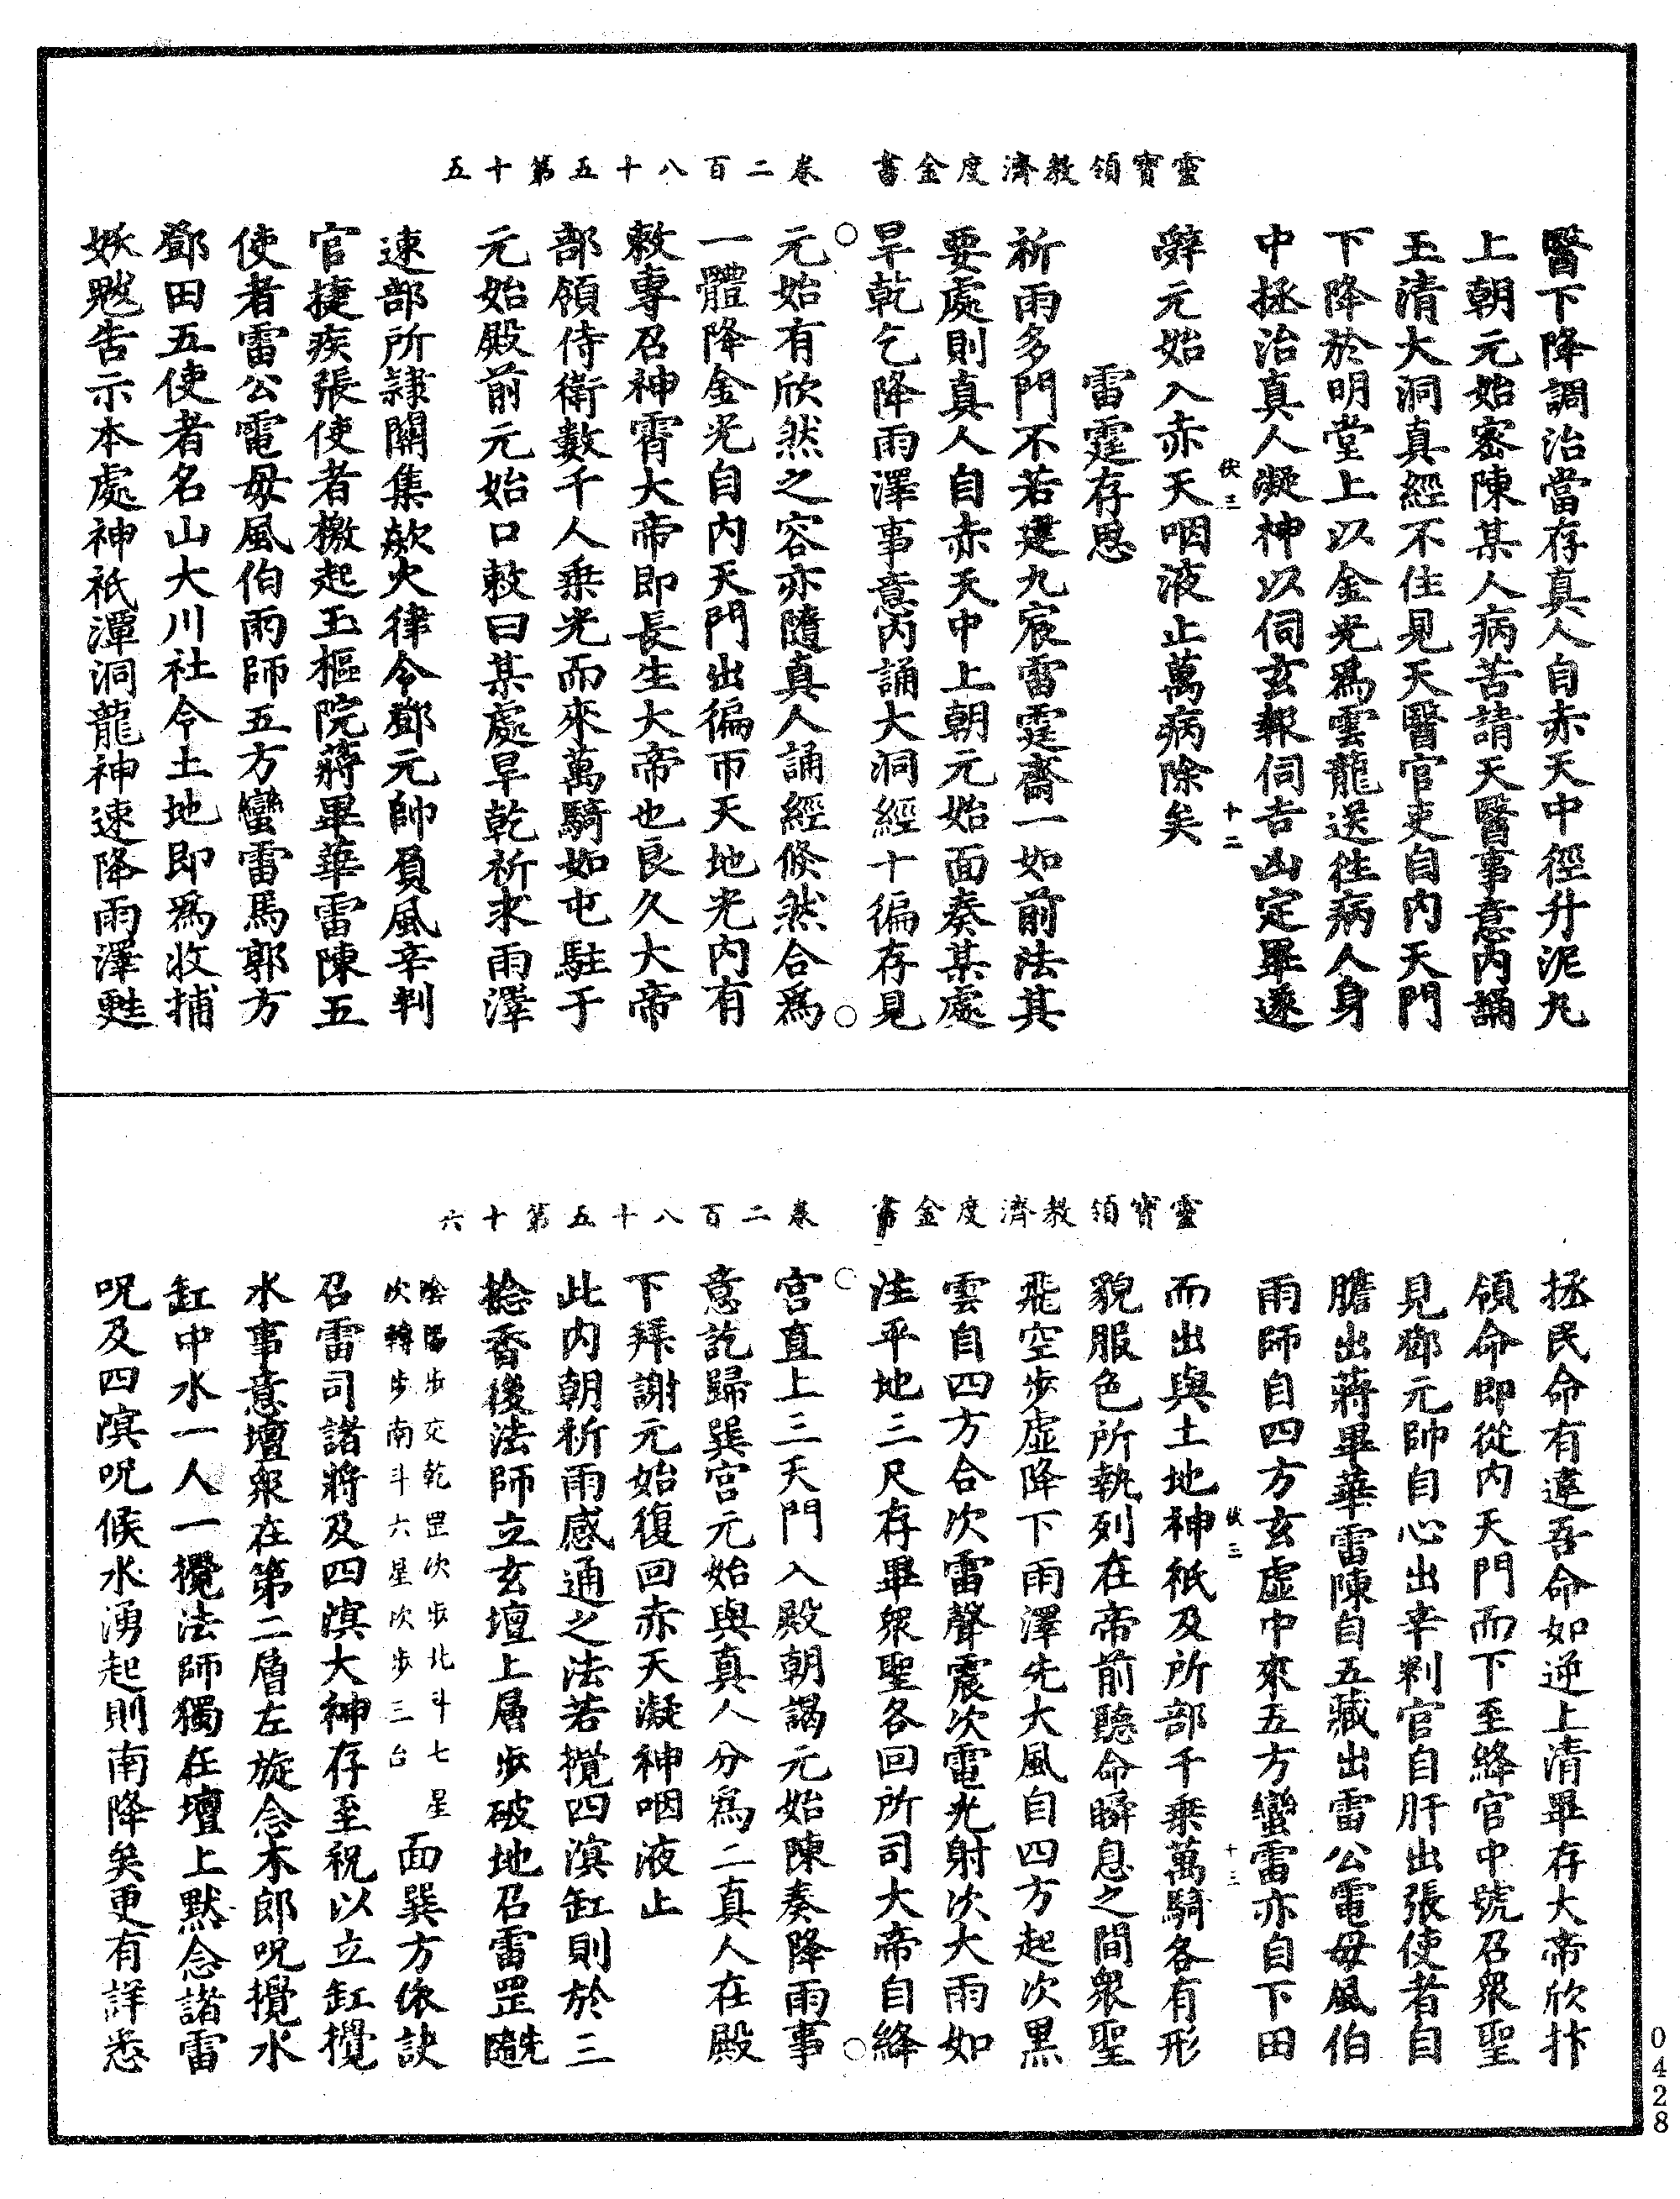 靈寶領教濟度金書　卷二百八十五第十五
醫下降調治當存真人自赤天中徑升泥丸
上朝元始密陳某人病苦請天醫事意丙誦
玉清大洞真經不住見天醫官吏自内天門
下降於明堂上以金光爲雲龍送往病人身
中拯治真人凝神以伺玄報伺吉凶定畢遂
伏三　十二
辭元始入赤天咽液止萬病除矣
雷霆存思
祈雨多門不若建九宸雷霆齋一如前法其
要處則真人自赤天中上朝元始面奏某處
旱乾乞降雨澤事意丙誦大洞經十徧存見
元始有欣然之容亦隨真人誦經倐然合爲
一體降金光自内天門出徧帀天地光内有
敕專召神霄大帝即長生大帝也良久大帝
部領侍衛數千人乗光而來萬騎如屯駐于
元始殿前元始口敕曰某處旱乾祈求雨澤
速部所隷關集欻火律令鄧元帥負風辛判
官捷疾張使者檄起玉樞院蔣畢華雷陳五
使者雷公電母風伯雨師五方蠻雷馬郭方
鄧田五使者名山大川社令土地即爲收捕
妖魃告示本處神祇潭洞龍神速降雨澤甦
靈寶領教濟度金書　卷二百八十五第十六
拯民命有違吾命如逆上清畢存大帝欣抃
領命即從内天門而下至絳宫中號召衆聖
見鄧元帥自心出辛判官自肝出張使者自
膽出蔣畢華雷陳自五藏出雷公電母風伯
雨師自四方玄虛中來五方蠻雷亦自下田
伏三　十三
而出與土地神祇及所部千乗萬騎各有形
貌服色所執列在帝前聽命瞬息之間衆聖
飛空步虛降下雨澤先大風自四方起次黑
雲自四方合次雷聲震次電光射次大雨如
注平地三尺存畢衆聖各回所司大帝自絳
宫直上三天門入殿朝謁元始陳奏降雨事
意訖歸巽宫元始與真人分爲二真人在殿
下拜謝元始復回赤天凝神咽液止
此内朝祈雨感通之法若攪四溟缸則於三
捻香後法師立玄壇上層步破地召雷罡隨先
陰陽步交乾罡次步北斗七星
次轉步南斗六星次步三台面巽方依訣
召雷司諸將及四溟大神存至祝以立缸攪
水事意壇衆在第二層左旋念木郎呪攪水
缸中水一人一攪法師獨在壇上默念諸雷
呪及四溟呪候水湧起則南降矣更有詳悉
0428